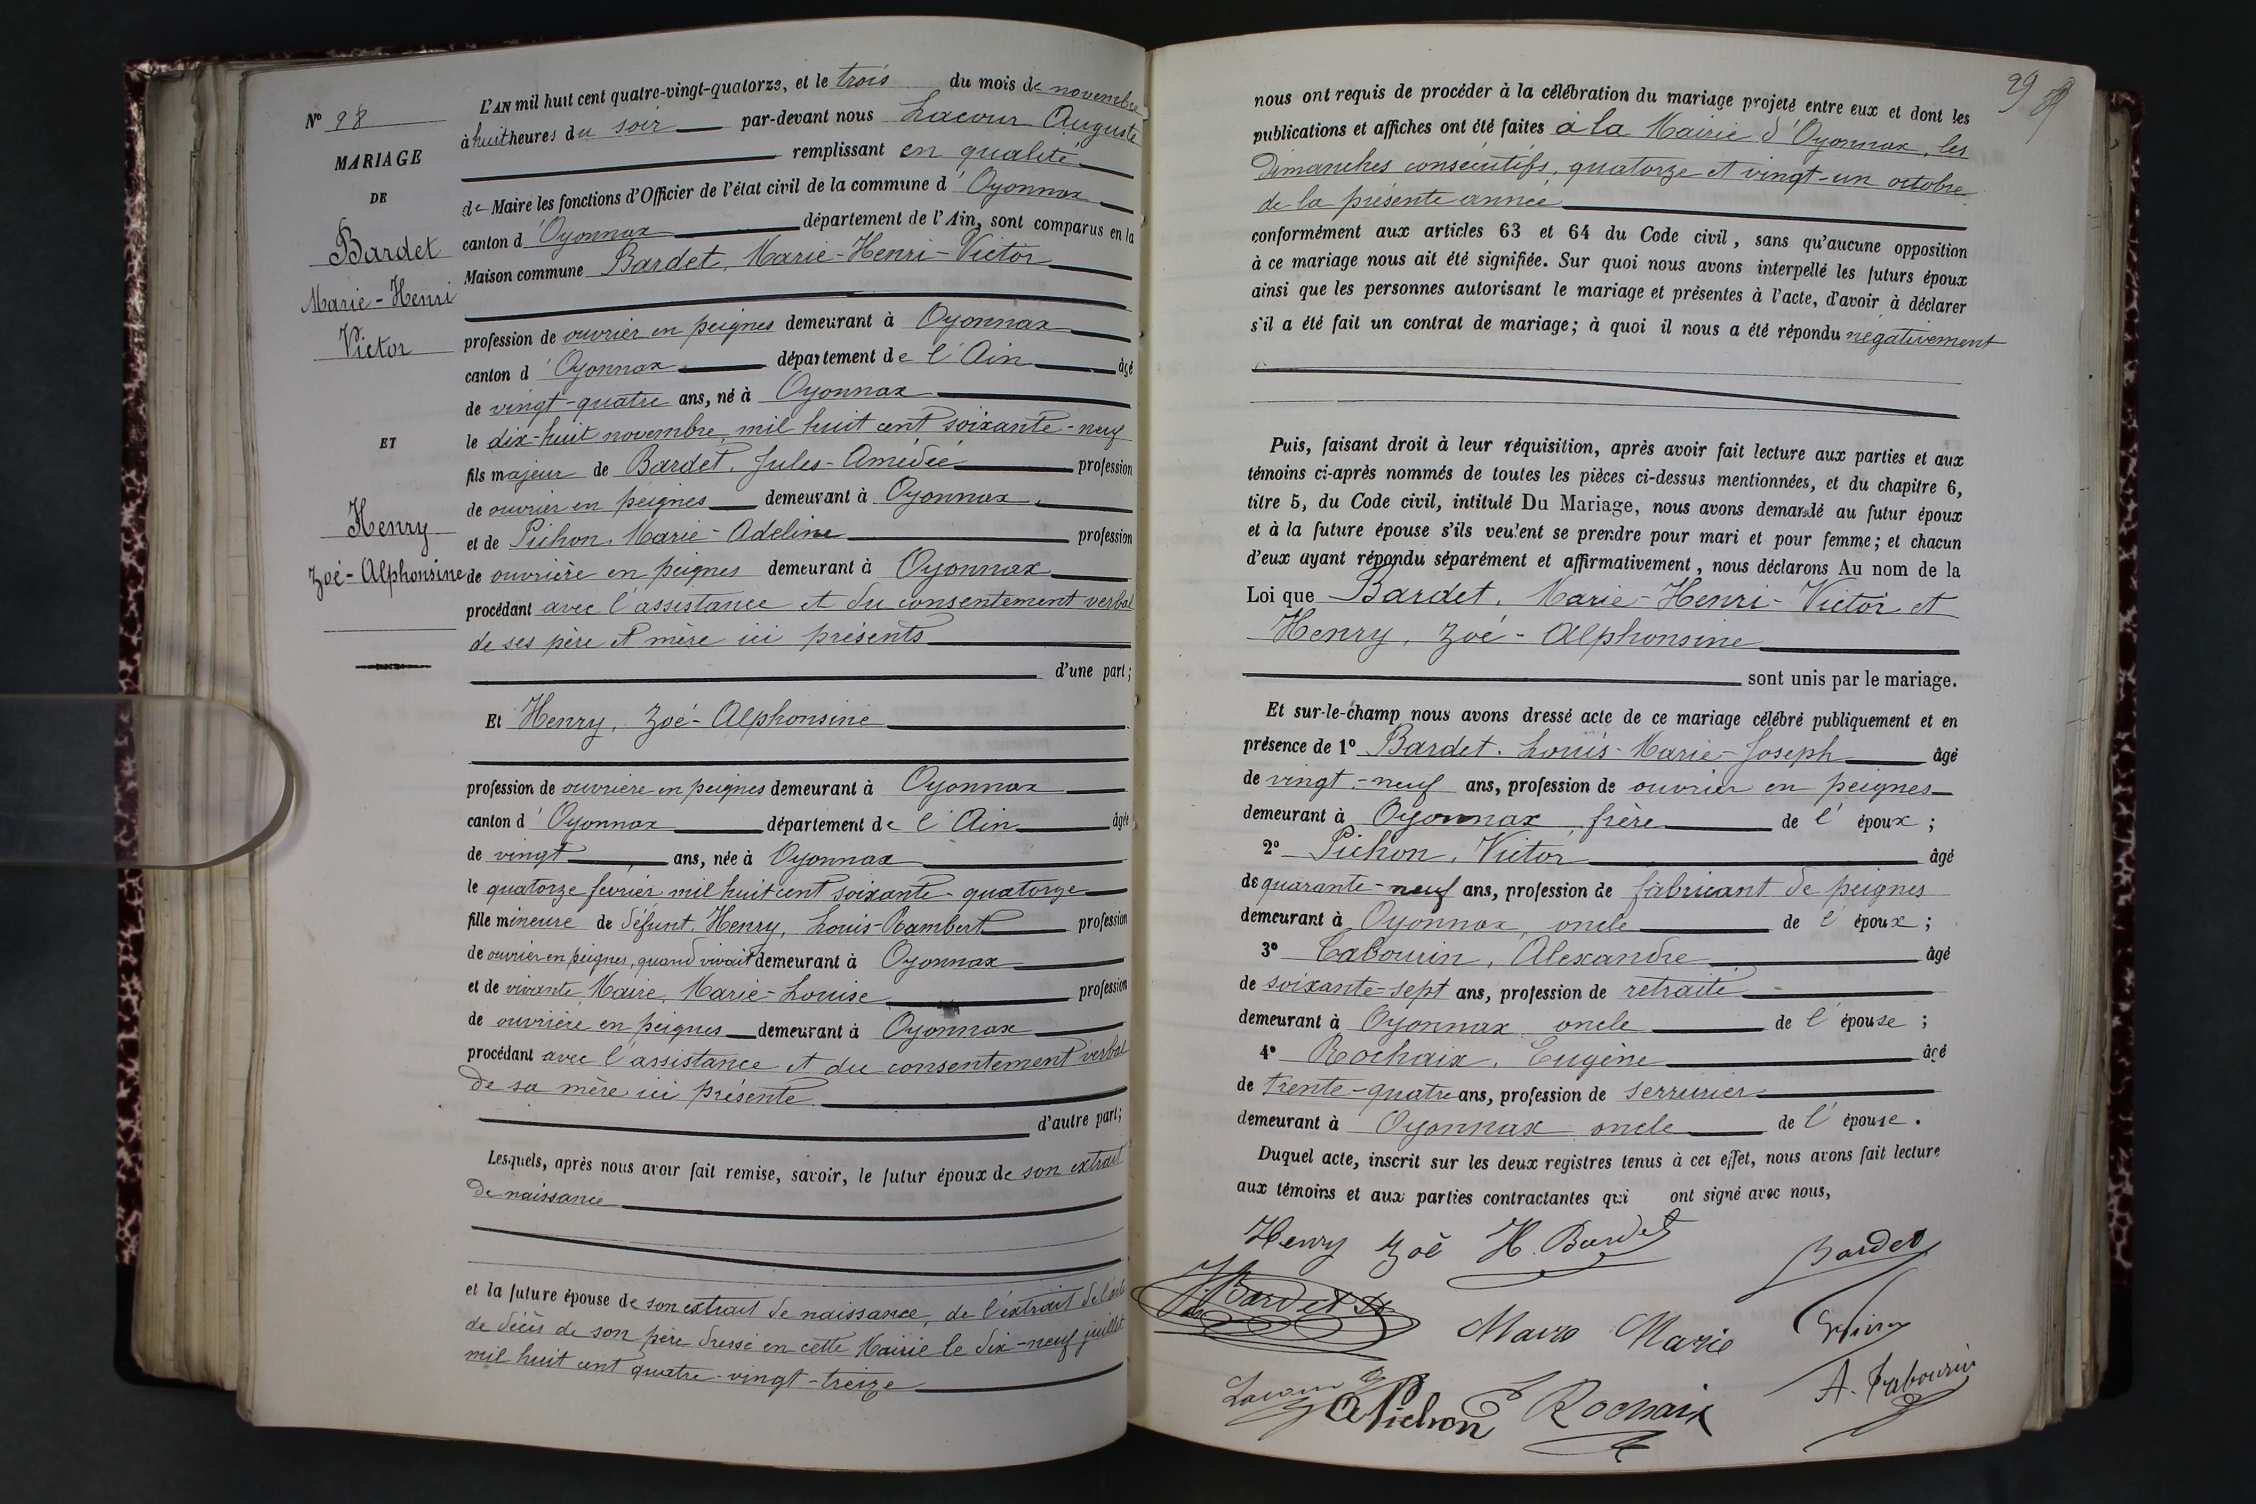 N° 28
MARIAGE
DE
Bardet
Marie-Henri
Victor
ET
Henry
Zoé-Alphonsine
L'AN mil huit cent quatre-vingt-quatorze, et le trois du mois de novembre
à huit heures du soir par-devant nous Lacour Auguste
remplissant en qualité
de Maire les fonctions d'Officier de l'état civil de la commune d'Oyonnax
canton d'Oyonnax département de l'Ain, sont comparus en la
Maison commune Bardet, Marie-Henri-Victor
profession de ouvrier en peignes demeurant à Oyonnax
canton d'Oyonnax département de l'Ain âgé
de vingt-quatre ans, né à Oyonnax
le dix-huit novembre mil huit cent soixante-neuf
fils majeur de Bardet, Jules-Amédée profession
de ouvrier en peignes demeurant à Oyonnax
et de Pichon, Marie-Adeline profession
de ouvrière en peignes demeurant à Oyonnax
procédant avec l'assistance et du consentement verbal
de ses père et mère ici présents
d'une part;
Et Henry, Zoé-Alphonsine
profession de ouvrière en peignes demeurant à Oyonnax
canton d'Oyonnax département de l'Ain âgée
de vingt ans, née à Oyonnax
le quatorze février mil huit cent soixante-quatorze
fille mineure de défunt Henry, Louis-Rambert profession
de ouvrier en peignes, quand vivait demeurant à Oyonnax
et de vivante Maire, Marie-Louise profession
de ouvrière en peignes demeurant à Oyonnax
procédant avec l'assistance et du consentement verbal
de sa mère ici présente
d'autre part;
Lesquels, après nous avoir fait remise, savoir, le futur époux de son extrait
de naissance
et la future épouse de son extrait de naissance, de l'extrait de l'acte
de décès de son père dressé en cette Mairie le dix-neuf juillet
mil huit cent quatre-vingt-treize
29
nous ont requis de procéder à la célébration du mariage projeté entre eux et dont les
publications et affiches ont été faites à la Mairie d'Oyonnax, les
dimanches consécutifs, quatorze et vingt-un octobre
de la présente année
conformément aux articles 63 et 64 du Code civil, sans qu'aucune opposition
à ce mariage nous ait été signifiée. Sur quoi nous avons interpellé les futurs époux
ainsi que les personnes autorisant le mariage et présentes à l'acte, d'avoir à déclarer
s'il a été fait un contrat de mariage; à quoi il nous a été répondu négativement
Puis, faisant droit à leur réquisition, après avoir fait lecture aux parties et aux
témoins ci-après nommés de toutes les pièces ci-dessus mentionnées, et du chapitre 6,
titre 5, du Code civil, intitulé Du Mariage, nous avons demandé au futur époux
et à la future épouse s'ils veulent se prendre pour mari et pour femme; et chacun
d'eux ayant répondu séparément et affirmativement, nous déclarons Au nom de la
Loi que Bardet, Marie-Henri-Victor et
Henry, Zoé-Alphonsine
sont unis par le mariage.
Et sur-le-champ nous avons dressé acte de ce mariage célébré publiquement et en
présence de 1° Bardet, Louis-Marie-Joseph âgé
de vingt-neuf ans, profession de ouvrier en peignes
demeurant à Oyonnax, frère de l'époux;
2° Pichon, Victor âgé
de quarante-neuf ans, profession de fabricant de peignes
demeurant à Oyonnax, oncle de l'époux;
3° Tabourin, Alexandre âgé
de soixante-sept ans, profession de retraité
demeurant à Oyonnax oncle de l'épouse;
4° Rochaix, Eugène âgé
de trente-quatre ans, profession de serrurier
demeurant à Oyonnax oncle de l'épouse.
Duquel acte, inscrit sur les deux registres tenus à cet effet, nous avons fait lecture
aux témoins et aux parties contractantes qui ont signé avec nous,
Henry Zoé H. Bardet Bardet
Bardet Maire Marie
Lacour A Pichon E Rochaix A. Tabourin